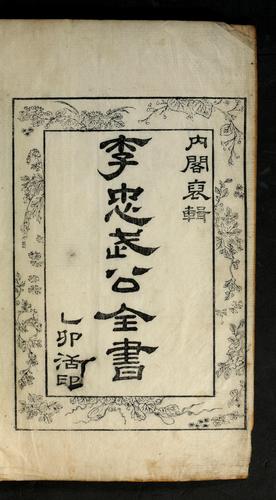 內閣裒輯
李忠武公全書
乙卯活印